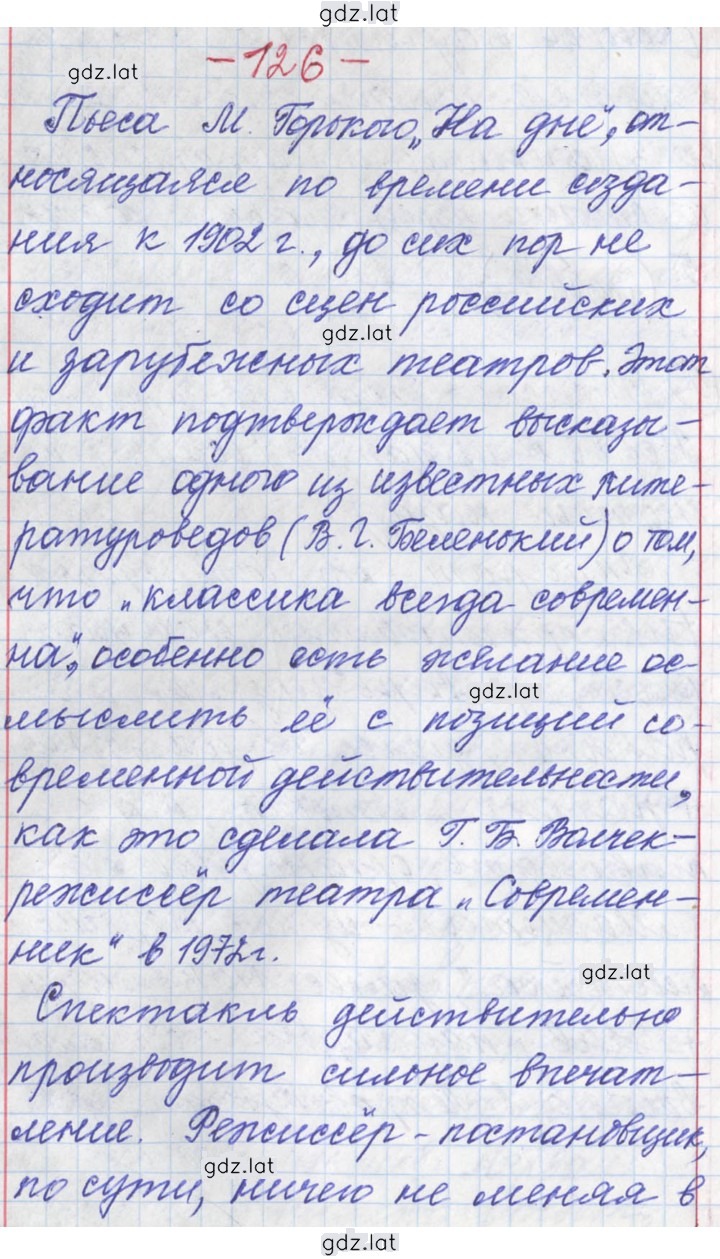 gdz.lat
-126-
gdz.lat
Пьеса М. Горького „На дне", от-
носящаяся по времени созда-
ния к 1902 г., до сих пор не
сходит со сцен российских
gdz.lat
и зарубежных театров. Этот
факт подтверждает высказы-
вание одного из известных лите-
ратуроведов (В.Г. Беленький) о том,
что „классика всегда современ-
на", особенно есть желание ос-
gdz.lat
мыслить её с позиций со-
временной действительности,
как это сделала Г.Б. Волчек-
режиссёр театра „Современ-
ник" в 1972г.
gdz.lat
Спектакль действительно
производит сильное впечат-
ление. Режиссёр-постановщик,
gdz.lat
по сути, ничего не меняя в
gdz.lat